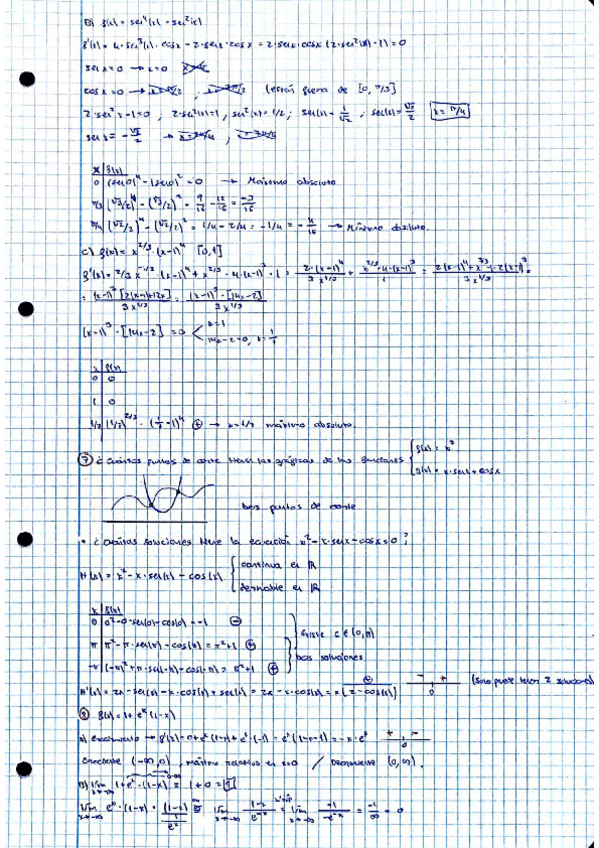 b) f(x) = sen⁴(x) - sen²(x)
f'(x) = 4·sen³(x)·cosx - 2·senx·cosx = 2·senx·cosx (2·sen²(x) - 1) = 0
senx = 0 → x = 0
cosx = 0 → (están fuera de [0, π/3]
2·sen²x - 1 = 0 ; 2·sen²(x) = 1 ; sen²(x) = 1/2 ; sen(x) = 1/√2 , sen(x) = √2/2 x = π/4
senx = -√2/2 →
x f(x)
0 (sen0)⁴ - (sen0)² = 0 → Máximo absoluto
π/3 (√3/2)⁴ - (√3/2)² = 9/16 - 12/16 = -3/16
π/4 (√2/2)⁴ - (√2/2)² = 1/4 - 2/4 = -1/4 = -4/16 → Mínimo absoluto.
c) f(x) = x^2/3 · (x-1)⁴ [0,1]
f'(x) = 2/3 x^-1/3 · (x-1)⁴ + x^2/3 · 4·(x-1)³ · 1 = 2·(x-1)⁴/3x^1/3 + x^2/3·4·(x-1)³/1 =
= (x-1)³[2(x-1)+12x]/3x^1/3 = (x-1)³·[14x-2]/3x^1/3
(x-1)³·[14x-2] = 0 < x=1
14x-2=0, x=1/7
x f(x)
0 0
1 0
1/7 (1/7)^2/3 · (1/7 - 1)⁴ ⊕ → x = 1/7 máximo absoluto.
⑦ ¿Cuántos puntos de corte tienen las gráficas de las funciones { f(x) = x²
g(x) = x·senx + cosx
Dos puntos de corte
• ¿Cuántas soluciones tiene la ecuación x² - x·senx - cosx = 0?
H(x) = x² - x·sen(x) - cos(x) { continua en ℝ
derivable en ℝ
x f(x)
0 0² - 0·sen(0) - cos(0) = -1 ⊖
π π² - π·sen(π) - cos(π) = π²+1 ⊕
-π (-π)² + π·sen(-π) - cos(-π) = π²+1 ⊕
Existe c ∈ (0,π)
Dos soluciones
H'(x) = 2x - sen(x) - x·cos(x) + sen(x) = 2x - x·cos(x) = x(2 - cos(x)) ⊕ - + 0 (Solo puede tener 2 soluciones)
f(x) = 1 + eˣ(1-x)
a) Crecimiento → f'(x) = 0 + eˣ(1-x) + eˣ·(-1) = eˣ(1-x-1) = -x·eˣ + - 0
Creciente (-∞,0), máximo relativo en x=0 / Decreciente (0,∞).
b) lim x→-∞ 1 + eˣ·(1-x) = 1 + 0 = 1
lim x→-∞ eˣ·(1-x) = (1-x)/(1/eˣ) = lim x→-∞ (1-x)/e⁻ˣ = lim x→-∞ -1/-e⁻ˣ = -1/∞ = 0